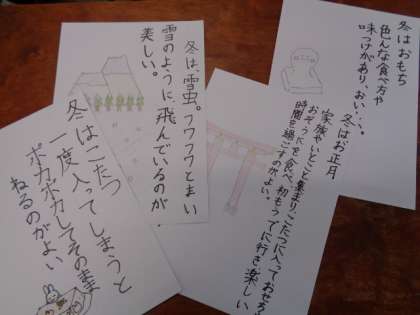 冬はおもち
色んな食べ方や
味つけがあり、おい
冬は、雪虫。フワフワとまい
雪のように、飛んでいるのが
美しい。
冬はお正月
家族やいとこと集まり、こたつに入っておせち
おぞうにを食べ、初もうでに行き楽しい
時間を過ごすのがよい。
冬はこたつ
一度入ってしまうと
ポカポカしてそのまま
ねるのがよい